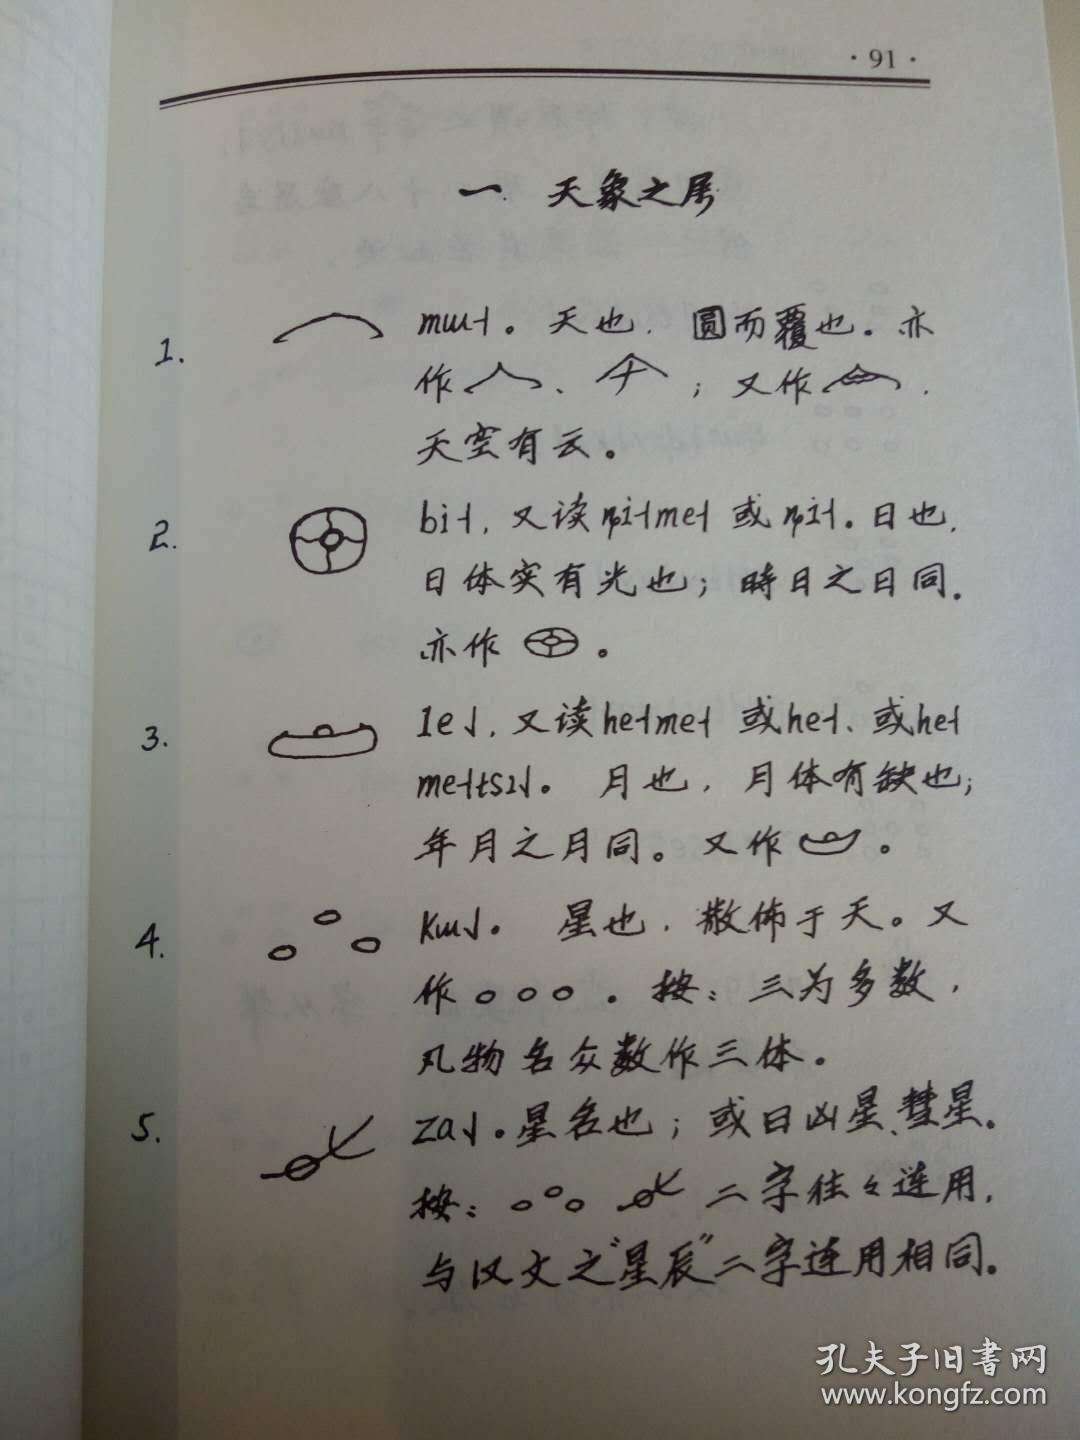 · 91 ·
一. 天象之属
1. mɯ˧。天也，圆而覆也。亦
作 、 ；又作 ，
天空有云。
2. bi˧，又读ȵi˧me˧或ȵi˧。日也，
日体实有光也；時日之日同。
亦作 。
3. le˩，又读he˧me˧ 或he˧、或he˧
me˧tsɿ˩。 月也，月体有缺也；
年月之月同。又作 。
4. kɯ˩。 星也，散佈于天。又
作 。按：三为多数，
凡物名众数作三体。
5. za˩。星名也；或曰凶星、彗星。
按： 二字往々连用，
与汉文之“星辰”二字连用相同。
孔夫子旧書网
www.kongfz.com